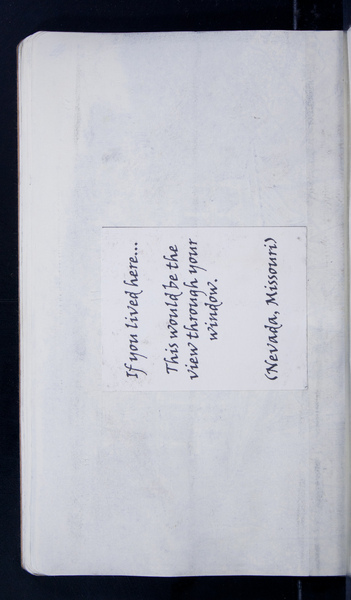 If you lived here...
This would be the
view through your
window.
(Nevada, Missouri)